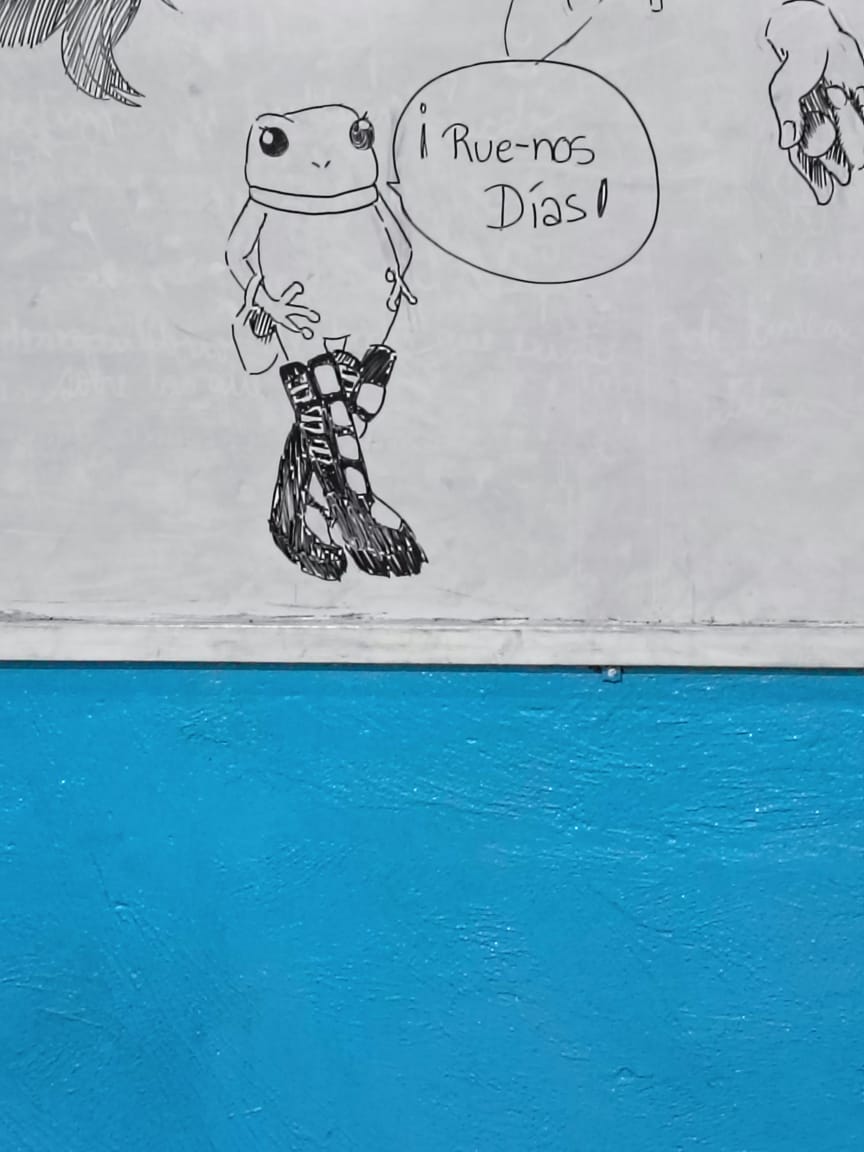 ¡Rue-nos
Días!